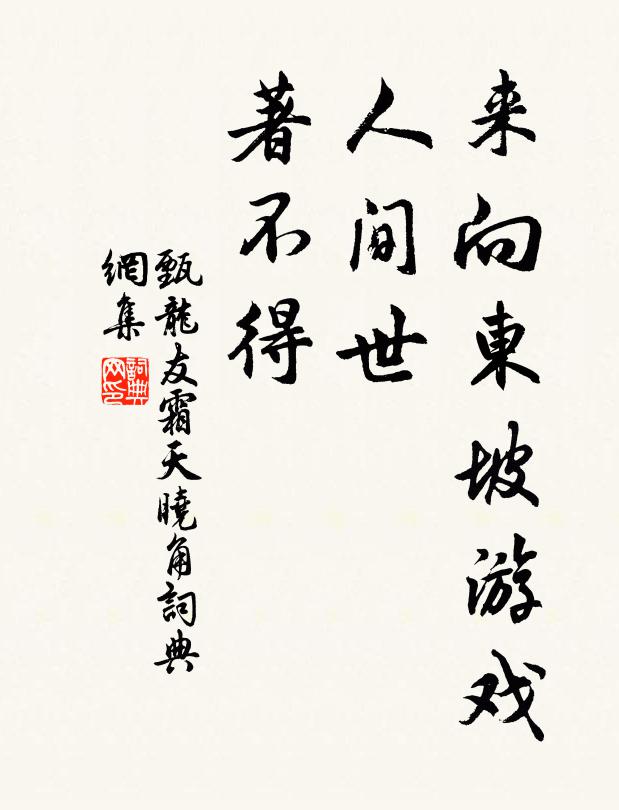 来向東坡游戏
人间世
著不得
甄龍友霜天曉角詞典
網集
詞典
网印